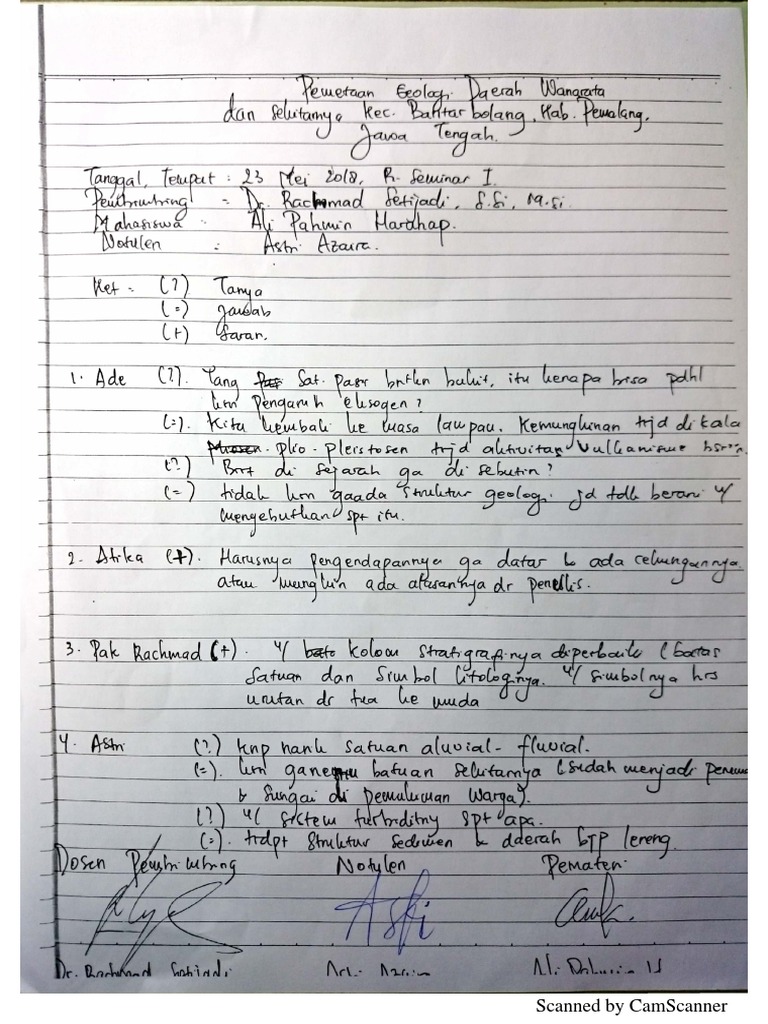 Pemetaan Geologi Daerah Wangrata
dan sekitarnya Kec. Bantarbolang, Kab. Pemalang,
Jawa Tengah.
Tanggal, Tempat : 23 Mei 2018, R. Seminar I.
Pembimbing = Dr. Rachmad Setijadi, S.Si, M.si.
Mahasiswa : Ali Pahmin Harahap.
Notulen : Astri Azaura.
Ket = (?) Tanya
(=) Jawab
(+) Saran.
1. Ade (?). Yang Sat. pasir bntkn bukit, itu kenapa bisa pdhl
krn pengaruh eksogen?
(=). Kita kembali ke masa lampau. Kemungkinan trjd di kala
plio - pleistosen trjd aktivitas vulkanisme
(?) Brrt di sejarah ga di sebutin?
(=) tidak krn gaada struktur geologi jd tdk berani u/
mengebutkan spt itu.
2. Atika (+). Harusnya pengendapannya ga datar & ada cekungannya
atau mungkin ada alasannya dr penulis.
3. Pak Rachmad (+). u/ kolom stratigrafinya diperbaiki (batas
satuan dan simbol litologinya. u/ simbolnya hrs
urutan dr tua ke muda
4. Astri (?) knp nank satuan aluvial - fluvial.
(=). krn batuan sekitarnya (sudah menjadi
& sungai di pemukiman warga).
(?) u/ sistem turbiditny spt apa.
(=). trdpt struktur sedimen & daerah GTP lereng.
Dosen Pembimbing Notulen Pemateri
Astri
Dr. Rachmad Setijadi
Scanned by CamScanner